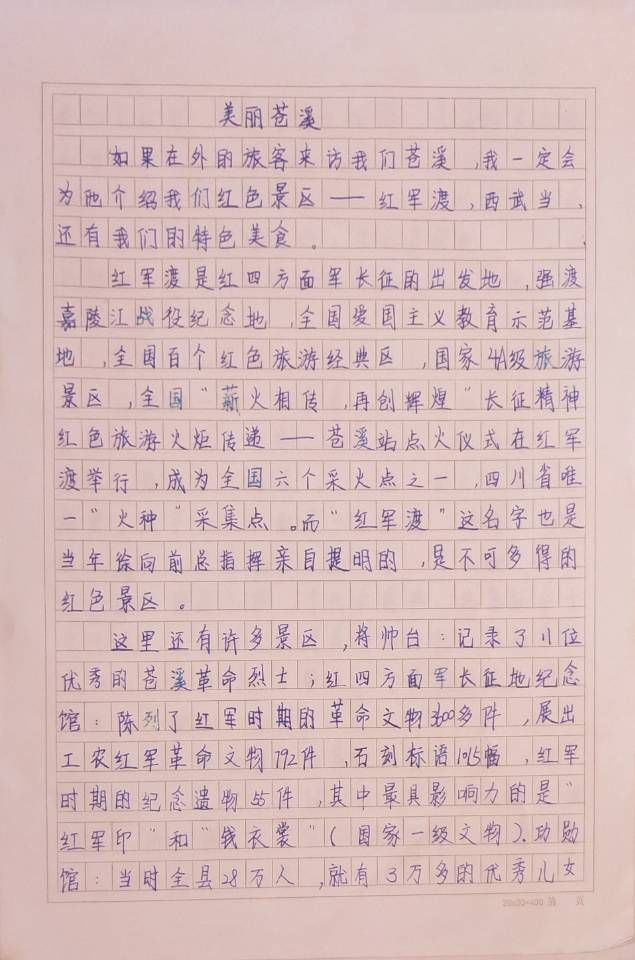 美丽苍溪
如果在外的旅客来访我们苍溪，我一定会
为他介绍我们红色景区——红军渡，西武当，
还有我们的特色美食。
红军渡是红四方面军长征的出发地，强渡
嘉陵江战役纪念地，全国爱国主义教育示范基
地，全国百个红色旅游经典区，国家4A级旅游
景区，全国“薪火相传，再创辉煌”长征精神
红色旅游火炬传递——苍溪站点火仪式在红军
渡举行，成为全国六个采火点之一，四川省唯
一“火种”采集点。而“红军渡”这名字也是
当年徐向前总指挥亲自提明的，是不可多得的
红色景区。
这里还有许多景区，将帅台：记录了11位
优秀的苍溪革命烈士；红四方面军长征地纪念
馆：陈列了红军时期的革命文物300多件，展出
工农红军革命文物792件，石刻标语1015幅，红军
时期的纪念遗物55件，其中最具影响力的是“
红军印”和“钱衣裳”（国家一级文物）.功勋
馆：当时全县28万人，就有3万多的优秀儿女
20×20=400 第 页